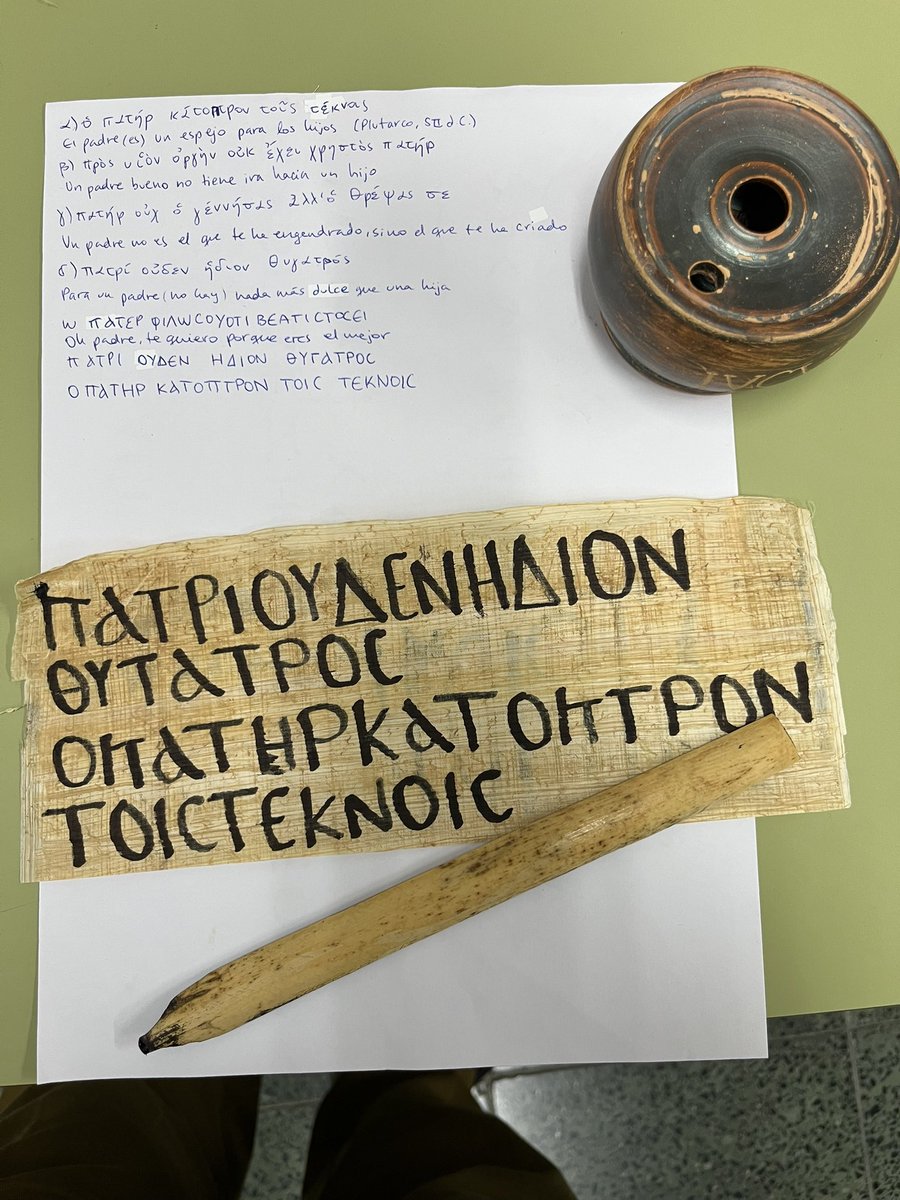 α) ὁ πατήρ κάτοπτρον τοῦς τέκνας
El padre (es) un espejo para los hijos (Plutarco, S II d.C.)
β) πρὸς υἱὸν ὀργὴν οὐκ ἔχει χρηστὸς πατήρ
Un padre bueno no tiene ira hacia un hijo
γ) πατήρ οὐχ ὁ γέννήσας ἀλλ'ὁ θρέψας σε
Un padre no es el que te ha engendrado, sino el que te ha criado
δ) πατρί οὐδεν ἡδιον θυγατρός
Para un padre (no hay) nada más dulce que una hija
Ѡ ΠΑΤΕΡ ΦΙΛΩ CΟΥ ΟΤΙ ΒΕΑΤΙCΤΟC ΕΙ
Oh padre, te quiero porque eres el mejor
ΠΑΤΡΙ ΟΥΔΕΝ ΗΔΙΟΝ ΘΥΓΑΤΡΟC
Ο ΠΑΤΗΡ ΚΑΤΟΠΤΡΟΝ ΤΟΙC ΤΕΚΝΟΙC
ΠΑΤΡΙΟΥΔΕΝΗΔΙΟΝ
ΘΥΤΑΤΡΟC
ΟΠΑΤΗΡΚΑΤΟΠΤΡΟΝ
ΤΟΙCΤΕΚΝΟΙC